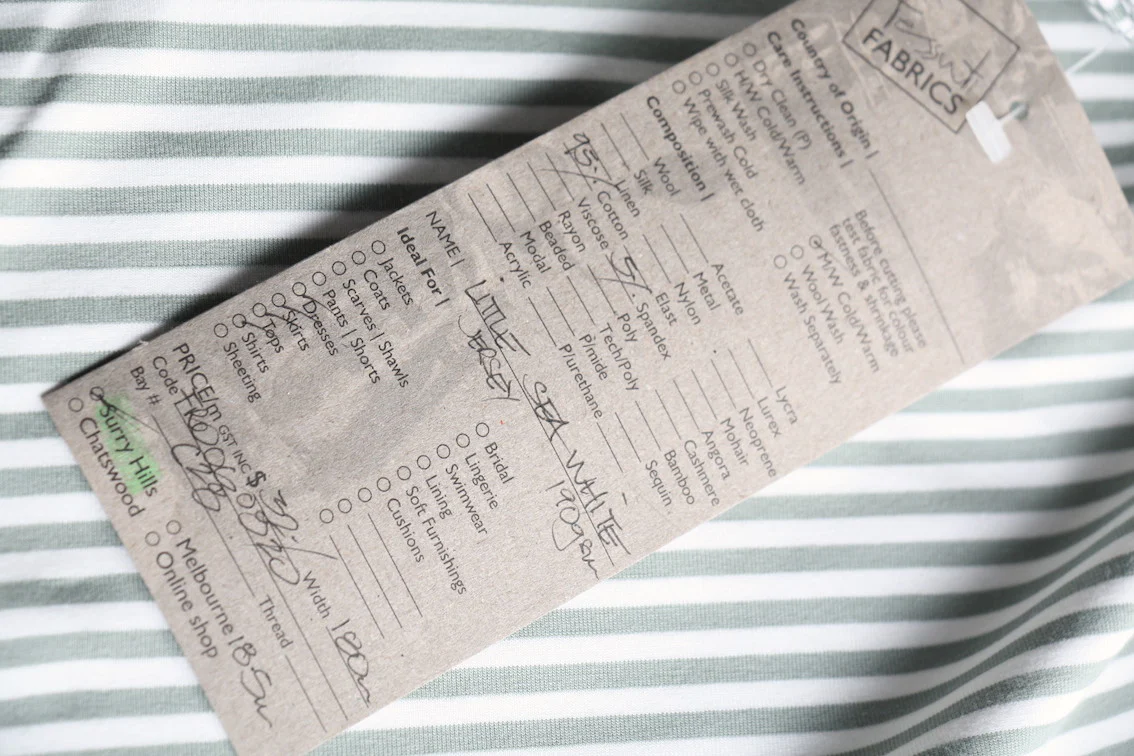 FABRICS
Country of Origin |
Care Instructions |
Dry Clean (P)
H/W Cold/Warm
Silk Wash
Prewash Cold
Wipe with wet cloth
Before cutting please
test fabric for colour
fastness & shrinkage
MW Cold/Warm
Wool Wash
Wash Separately
Composition |
Wool
Silk
Linen
95% Cotton
Viscose
Rayon
Beaded
Modal
Acrylic
Acetate
Metal
Nylon
Elast
5% Spandex
Poly
Tech/Poly
P/mide
P/urethane
Lycra
Lurex
Neoprene
Mohair
Angora
Cashmere
Bamboo
Sequin
NAME | LITTLE SEA WHITE
JERSEY 190gsm
Ideal For |
Jackets
Coats
Scarves | Shawls
Pants | Shorts
Dresses
Skirts
Tops
Shirts
Sheeting
Bridal
Lingerie
Swimwear
Lining
Soft Furnishings
Cushions
PRICE/m GST INC $ Width
Code
Thread
Bay #
Surry Hills
Chatswood
Melbourne
Online shop